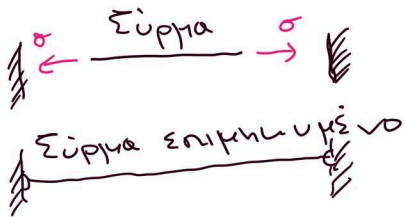 Σύρμα
σ σ
Σύρμα επιμηκυμένο